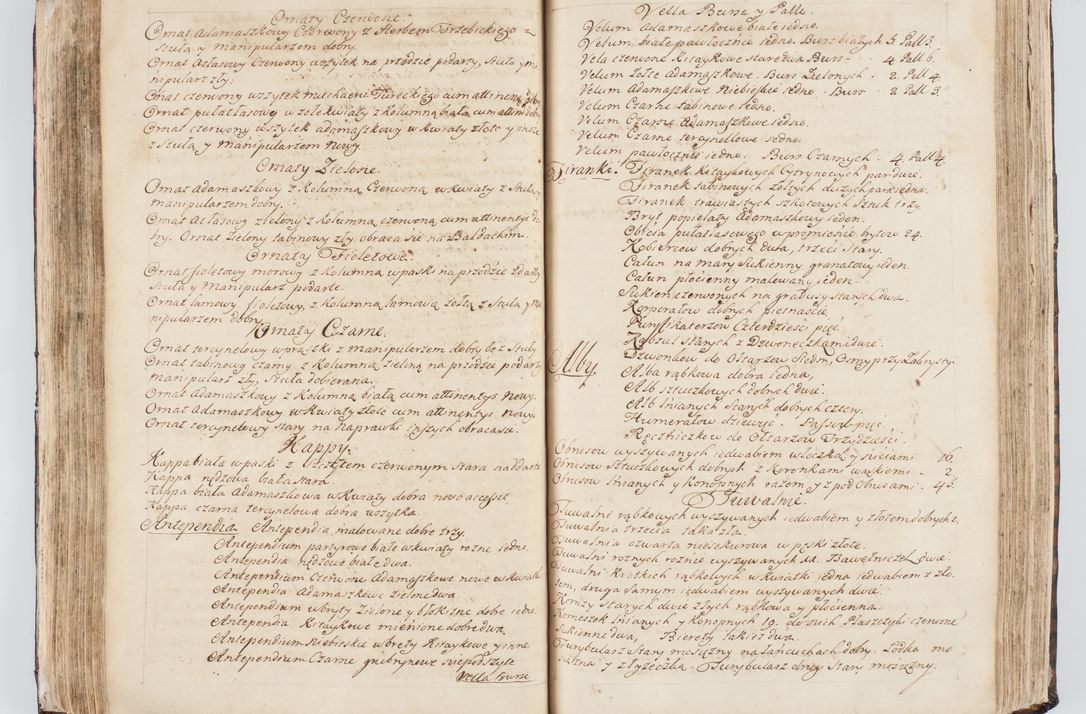 Ornaty Czerwone.
Ornat Adamaszkowy Czerwony z Herbem Trzebickiego z
Stułą y Manipularzem dobry.
Ornat Atlasowy Czerwony wszytek na przodzie podarty, Stuła y Ma
nipularz zły.
Ornat czerwony wszytek Tureckiego cum attinen: zły
Ornat pułatłasowy w żółte kwiaty z kolumną białą cum attinen: dobry
Ornat czerwony wszytek adamaszkowy w kwiaty złote y insze
z Stułą y Manipularzem Nowy.
Ornaty Zielone.
Ornat Adamaszkowy z Kolumną Czerwoną w kwiaty z Stułą,
Manipularzem dobry.
Ornat Atłasowy zielony z kolumną czerwoną cum attinentys do
bry. Ornat Zielony tabinowy zły obraca się na Baldachim.
Ornaty Fioletowe.
Ornat fioletowy morowy z Kolumną w paski na przodzie zdarty
Stuła y Manipularz podarte.
Ornat lamowy, fioletowy, z kolumną lamową żółtą z Stułą y Ma
nipularzem dobry.
Ornaty Czarne.
Ornat tercynelowy w prążki z Manipularzem dobry bez Stuły
Ornat tabinowy czarny z Kolumną zieloną na przodzie podarty
Manipularz zły, Stuła dobierana.
Ornat Adamaszkowy z Kolumną białą cum attinentys Nowy.
Ornat Adamaszkowy w kwiaty złote cum attinentys Nowy.
Ornat tercynelowy stary na naprawki inszych obraca się.
Kappy.
Kappa biała w paski z Szczytem czerwonym stara naddarta
Kappa rządzowa biała stara.
Kappa biała Adamaszkowa w kwiaty dobra novo accessit
Kappa czarna tercynelowa dobra wszytka.
Antependia. Antependia malowane dobre trzy.
Antependium parterowe białe w kwiaty rożne jedno.
Antependia rządzowe białe dwa.
Antependium Czerwone Adamaszkowe nowe w kwiatki
Antependia Adamaszkowe Zielone dwa.
Antependium w bryty Zielone y błękitne dobre jedno.
Antependia Kitaykowe mienione dobre dwa.
Antependium Niebieskie w brety Kitaykowe y inne
Antependium Czarne grubrynowe niepodszyte
Vella Bursæ
Vella Bursæ y Palle.
Velum Adamaszkowe białe jedno.
Velum, białe pawłocznie jedno. Burs białych 3. Pall 3.
Vela czerwone Kitaykowe stare dwa Burs - 4 Pall 6.
Velum Zołte Adamaszkowe. Burs Zielonych - 2. Pall 4.
Velum Adamaszkowe Niebieskie jedno. Burs - 2 Pall 3.
Velum Czarne tabinowe jedno.
Velum Czarne Adamaszkowe jedno.
Velum Czarne tercynellowe jedno.
Velum pawłocznie jedno. Burs Czarnych. 4. Pall 4.
Firanki. Firanek kitaykowych Cytrynowych par dwie.
Firanek tabinowych żółtych dużych para jedna.
Firanek trawiastych szkotowych Sztuk trzy.
Bryt popielaty Adamaszkowy jeden.
Obicia pułatłasowego w promienie brytow 24.
Kobiercow dobrych dwa, trzeci Stary.
Całun na mary Sukienny granatowy jeden.
Całun płócienny malowany jeden.
Sukien czerwonych na gradusy Starych dwa.
Korporałow dobrych pietnaście.
Puryfikaterzow Czterdzieści pięć.
Kobzul Starych z Dzwoneczkami dwie.
Dzwonkow do Ołtarzow Siedm, Osmy przy Zakrystyi
Alby. Alba rąbkowa dobra jedna,
Alb sztuczkowych dobrych dwie.
Alb lnianych Starych dobrych cztery.
Humerałow dziewięć. Passow pięć.
Ręczniczkow do Ołtarzow Trzydzieści.
Obrusow wyszywanych jedwabiem włoczką y niciami - 16
Obrusow Sztuczkowych dobrych z koronkami wąskiemi - 2.
Obrusow lnianych y konopnych razem y z pod Obrusami - 43.
Tuwalnie.
Tuwalni rąbkowych wyszywanych jedwabiem y złotem dobrych 2.
Tuwalnia trzecia taka zła.
Tuwalnia czwarta w paski złote.
Tuwalni rożnych rożnie wyszywanych 11. Bawełniczek dwie.
Tuwalni Krotkich rąbkowych w kwiatki jedna jedwabiem z zło
tem, druga samym jedwabiem wyszywanych dwie.
Komży Starych dwie złych rąbkowa y płócienna.
Komeszek lnianych y konopnych 19. do nich Płaszczyki czerwone
Sukienne dwa, Birety także dwa.
Turybularz Stary mosiężny na łańcuchach dobry. Łodka mo
siężna y z łyżeczką. Turybularz drugi Stary mosiężny.